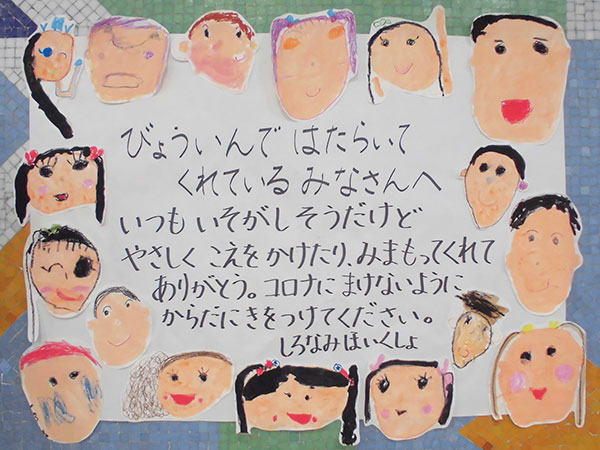 びょういんで はたらいて
くれている みなさんへ
いつも いそがしそうだけど
やさしく こえを かけたり、みまもってくれて
ありがとう。コロナに まけないように
からだに きをつけてください。
しろなみほいくしょ